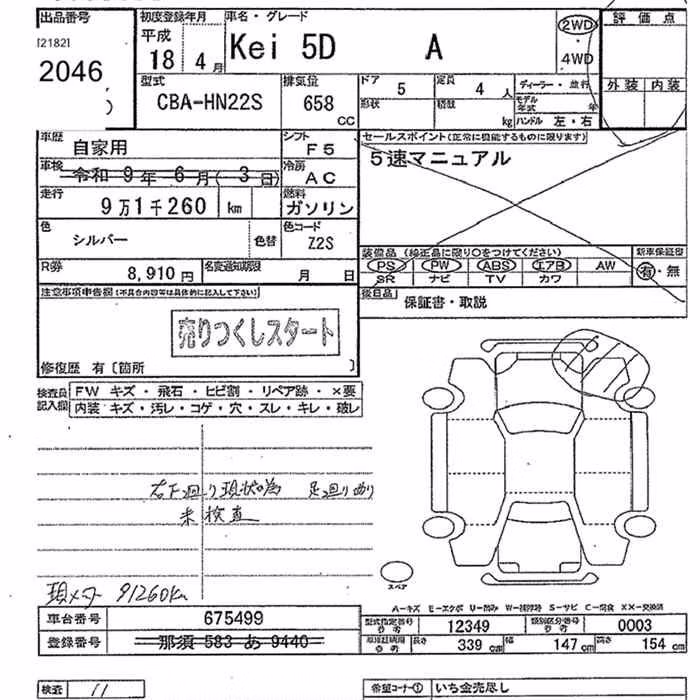 出品番号
[2182]
2046
初度登録年月
平成
18 4月
車名・グレード
Kei 5D A
2WD
4WD
評価点
外装 内装
型式
CBA-HN22S
排気量
658
CC
ドア 5
定員 4人
形状
積載
kg
ディーラー・並行
モデル年式 年
ハンドル 左・右
車歴
自家用
シフト
F5
車検
令和 9年 6月( 3日)
冷房
AC
走行
9万1千260km
燃料
ガソリン
色
シルバー
色替
色コード
Z2S
R券
8,910円
名変通知期限
月 日
セールスポイント(正常に機能するものに限ります)
5速マニュアル
装備品(純正品に限り○をつけてください)
PS PW ABS エアB AW
SR ナビ TV カワ
新車保証書
有・無
後日品
保証書・取説
注意事項申告欄(不具合内容等は具体的に記入して下さい)
売りつくしスタート
修復歴 有〔箇所 〕
検査員記入欄
FW キズ・飛石・ヒビ割・リペア跡・×要
内装 キズ・汚レ・コゲ・穴・スレ・キレ・破レ
右下廻り現状の為 足廻り曲り
未検査
現メーター 91260km
スペア
A-キズ E-エクボ U-凹み W-補修跡 S-サビ C-腐食 XX-交換済
車台番号
675499
登録番号
那須 583 あ 9440
型式指定番号
参考
12349
類別区分番号
参考
0003
参考
長さ 339cm
幅 147cm
高さ 154cm
検査 11
希望コーナー①
いち金売尽し